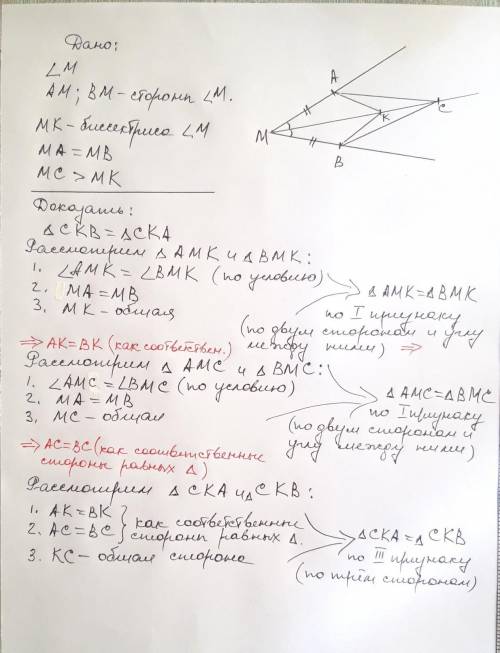 Дано:
∠M
AM; BM – стороны ∠M.
MK – биссектриса ∠M
MA = MB
MC > MK
A
K
C
M
B
Доказать:
△CKB = △CKA
Рассмотрим △AMK и △BMK:
1. ∠AMK = ∠BMK (по условию)
2. MA = MB
3. MK – общая
△AMK = △BMK
по I признаку
(по двум сторонам и углу
между ними) ⇒
⇒ AK = BK (как соответствен.)
Рассмотрим △AMC и △BMC:
1. ∠AMC = ∠BMC (по условию)
2. MA = MB
3. MC – общая
△AMC = △BMC
по I признаку
(по двум сторонам и
углу между ними)
⇒ AC = BC (как соответственные
стороны равных △)
Рассмотрим △CKA и △CKB:
1. AK = BK
2. AC = BC } как соответственные
стороны равных △.
3. KC – общая сторона
△CKA = △CKB
по III признаку
(по трём сторонам)